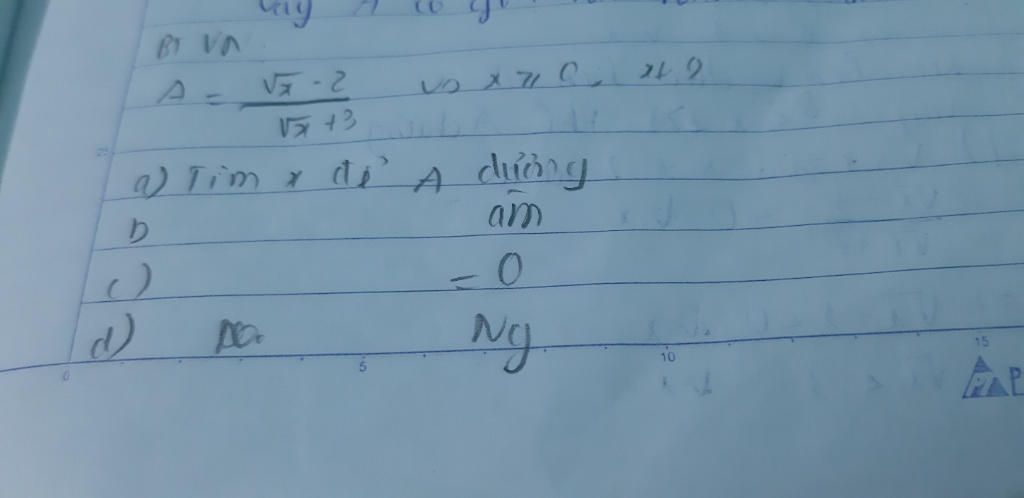 BT VN
A = \frac{\sqrt{x} - 2}{\sqrt{x} + 3} x ≥ 0,
a) Tìm x để A dương
b âm
c) = 0
d) Ng
0 5 10 15